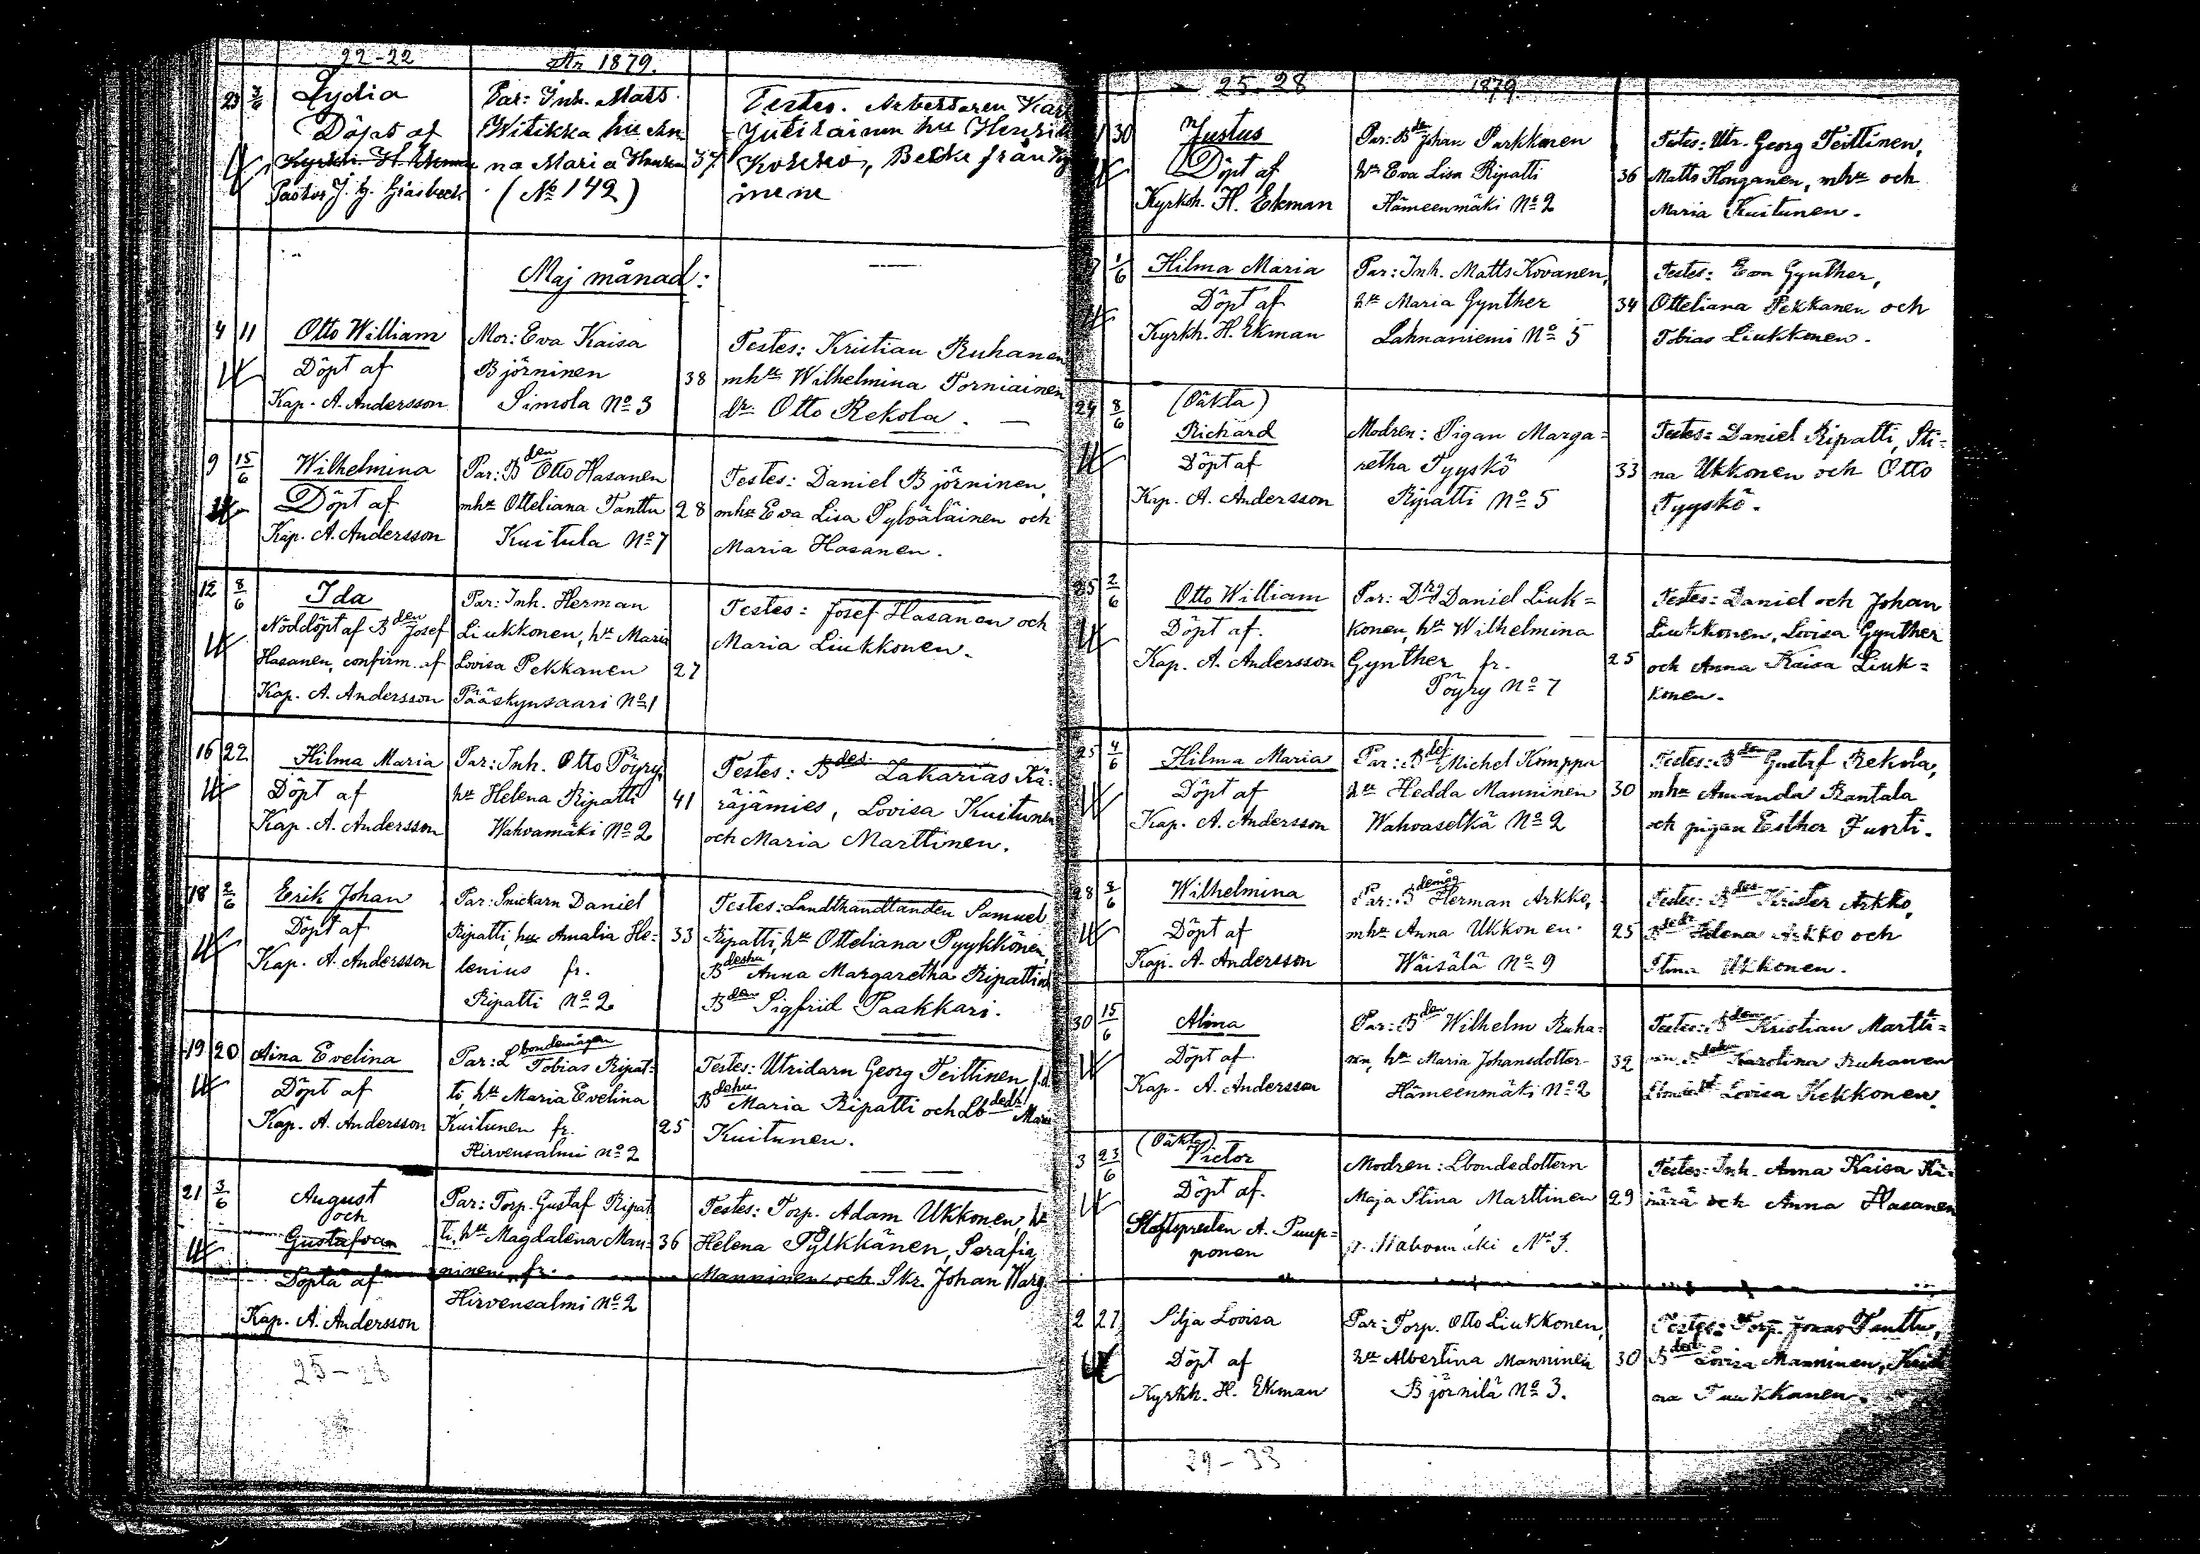 22-22
År 1879.
23 3/6
Lydia
Döpt af
Kyrkh. H. Ekman
Pastor J. G. Grasbeck
Par: Inh. Mats
Witikka hu An
na Maria
(No 142)
37
Testes. Arbetaren
Jutilainen hu
från
Maj månad:
4 11
Otto William
Döpt af
Kap. A. Andersson
Mor: Eva Kaisa
Björninen
Simola No 3
38
Testes: Kristian Ruhanen
mhu Wilhelmina Torniainen
dr. Otto Rekola.
9 15/6
Wilhelmina
Döpt af
Kap. A. Andersson
Par: Bden Otto Hasanen
mhu Otteliana Tanttu
Kuitula No 7
28
Testes: Daniel Björninen,
mhu Eva Lisa Pylväläinen och
Maria Hasanen.
12 8/6
Ida
Nöddöpt af Bden Josef
Hasanen, confirm. af
Kap. A. Andersson
Par: Inh. Herman
Liukkonen, hu Maria
Lovisa Pekkanen
Pääskynsaari No 1
27
Testes: Josef Hasanen och
Maria Liukkonen.
16 22
Hilma Maria
Döpt af
Kap. A. Andersson
Par: Inh. Otto Pöyry,
hu Helena Ripatti
Wahvamäki No 2
41
Testes: Bdes Zakarias Kä-
räjämies, Lovisa Kuitunen
och Maria Marttinen.
18 2/6
Erik Johan
Döpt af
Kap. A. Andersson
Par: Snickarn Daniel
Ripatti, hu Amalia He-
lenius fr.
Ripatti No 2
33
Testes: Landthandlanden Samuel
Ripatti, hu Otteliana Pyykkönen,
Bdeshu Anna Margaretha Ripatti och
Bden Sigfrid Paakkari.
19 20
Aina Evelina
Döpt af
Kap. A. Andersson
Par: Lbondemågen Tobias Ripat-
ti, hu Maria Evelina
Kuitunen fr.
Hirvensalmi No 2
25
Testes: Utridarn Georg Teittinen, f.d.
Bdehu Maria Ripatti och Lbdedr Maria
Kuitunen.
21 3/6
August
och
Gustafva
Döpta af
Kap. A. Andersson
Par: Torp. Gustaf Ripat
ti, hu Magdalena Man-
ninen fr.
Hirvensalmi No 2
36
Testes: Torp. Adam Ukkonen, hu
Helena Pylkkänen, Serafia
Manninen och Skr. Johan Warg
25-28
25-28
1879
30
Justus
Döpt af
Kyrkh. H. Ekman
Par: Bden Johan Parkkonen
hu Eva Lisa Ripatti
Hämeenmäki No 2
36
Testes: Utr. Georg Teittinen,
Matts Honganen, mhu och
Maria Kuitunen.
1/6
Hilma Maria
Döpt af
Kyrkh. H. Ekman
Par: Inh. Matts Kovanen,
hu Maria Gynther
Lahnaniemi No 5
34
Testes: Eva Gynther,
Otteliana Pekkanen och
Tobias Liukkonen.
24 8/6
(Oäkta)
Richard
Döpt af
Kap. A. Andersson
Modren: Pigan Marga-
retha Tyyskö
Ripatti No 5
33
Testes: Daniel Ripatti, Sti-
na Ukkonen och Otto
Tyyskö.
25 2/6
Otto William
Döpt af.
Kap. A. Andersson
Par: Drg Daniel Liuk-
konen, hu Wilhelmina
Gynther fr.
Pöyry No 7
25
Testes: Daniel och Johan
Liukkonen, Lovisa Gynther
och Anna Kaisa Liuk-
konen.
25 4/6
Hilma Maria
Döpt af
Kap. A. Andersson
Par: Bden Michel Komppa
hu Hedda Manninen
Wahvaselkä No 2
30
Testes: Bden Gustaf Rekola,
mhu Amanda Rantala
och pigan Esther Turti.
28 2/6
Wilhelmina
Döpt af
Kap. A. Andersson
Par: Bdemåg Herman Arkko,
mhu Anna Ukkonen.
Wäisälä No 9
25
Testes: Bdes Krister Arkko,
Bdedr Helena Arkko och
Stina Ukkonen.
30 15/6
Alma
Döpt af
Kap. A. Andersson
Par: Bden Wilhelm Ruha-
nen, hu Maria Johansdotter
Hämeenmäki No 2
32
Testes: Bden Kristian Martti-
nen, Karolina Ruhanen
Lovisa Kekkonen.
3 23/6
(Oäkta)
Victor
Döpt af.
A. Puup-
ponen
Modren: Lbondedottern
Maja Stina Marttinen
No 3.
29
Testes: Inh. Anna Kaisa Kä-
närä och Anna Hasanen
2 27
Silja Lovisa
Döpt af
Kyrkh. H. Ekman
Par: Torp. Otto Liukkonen,
hu Albertina Manninen
Björnilä No 3.
30
Testes: Torp. Jonas Tanttu,
Bdedr Lovisa Manninen,
na Tuukkanen.
29-33